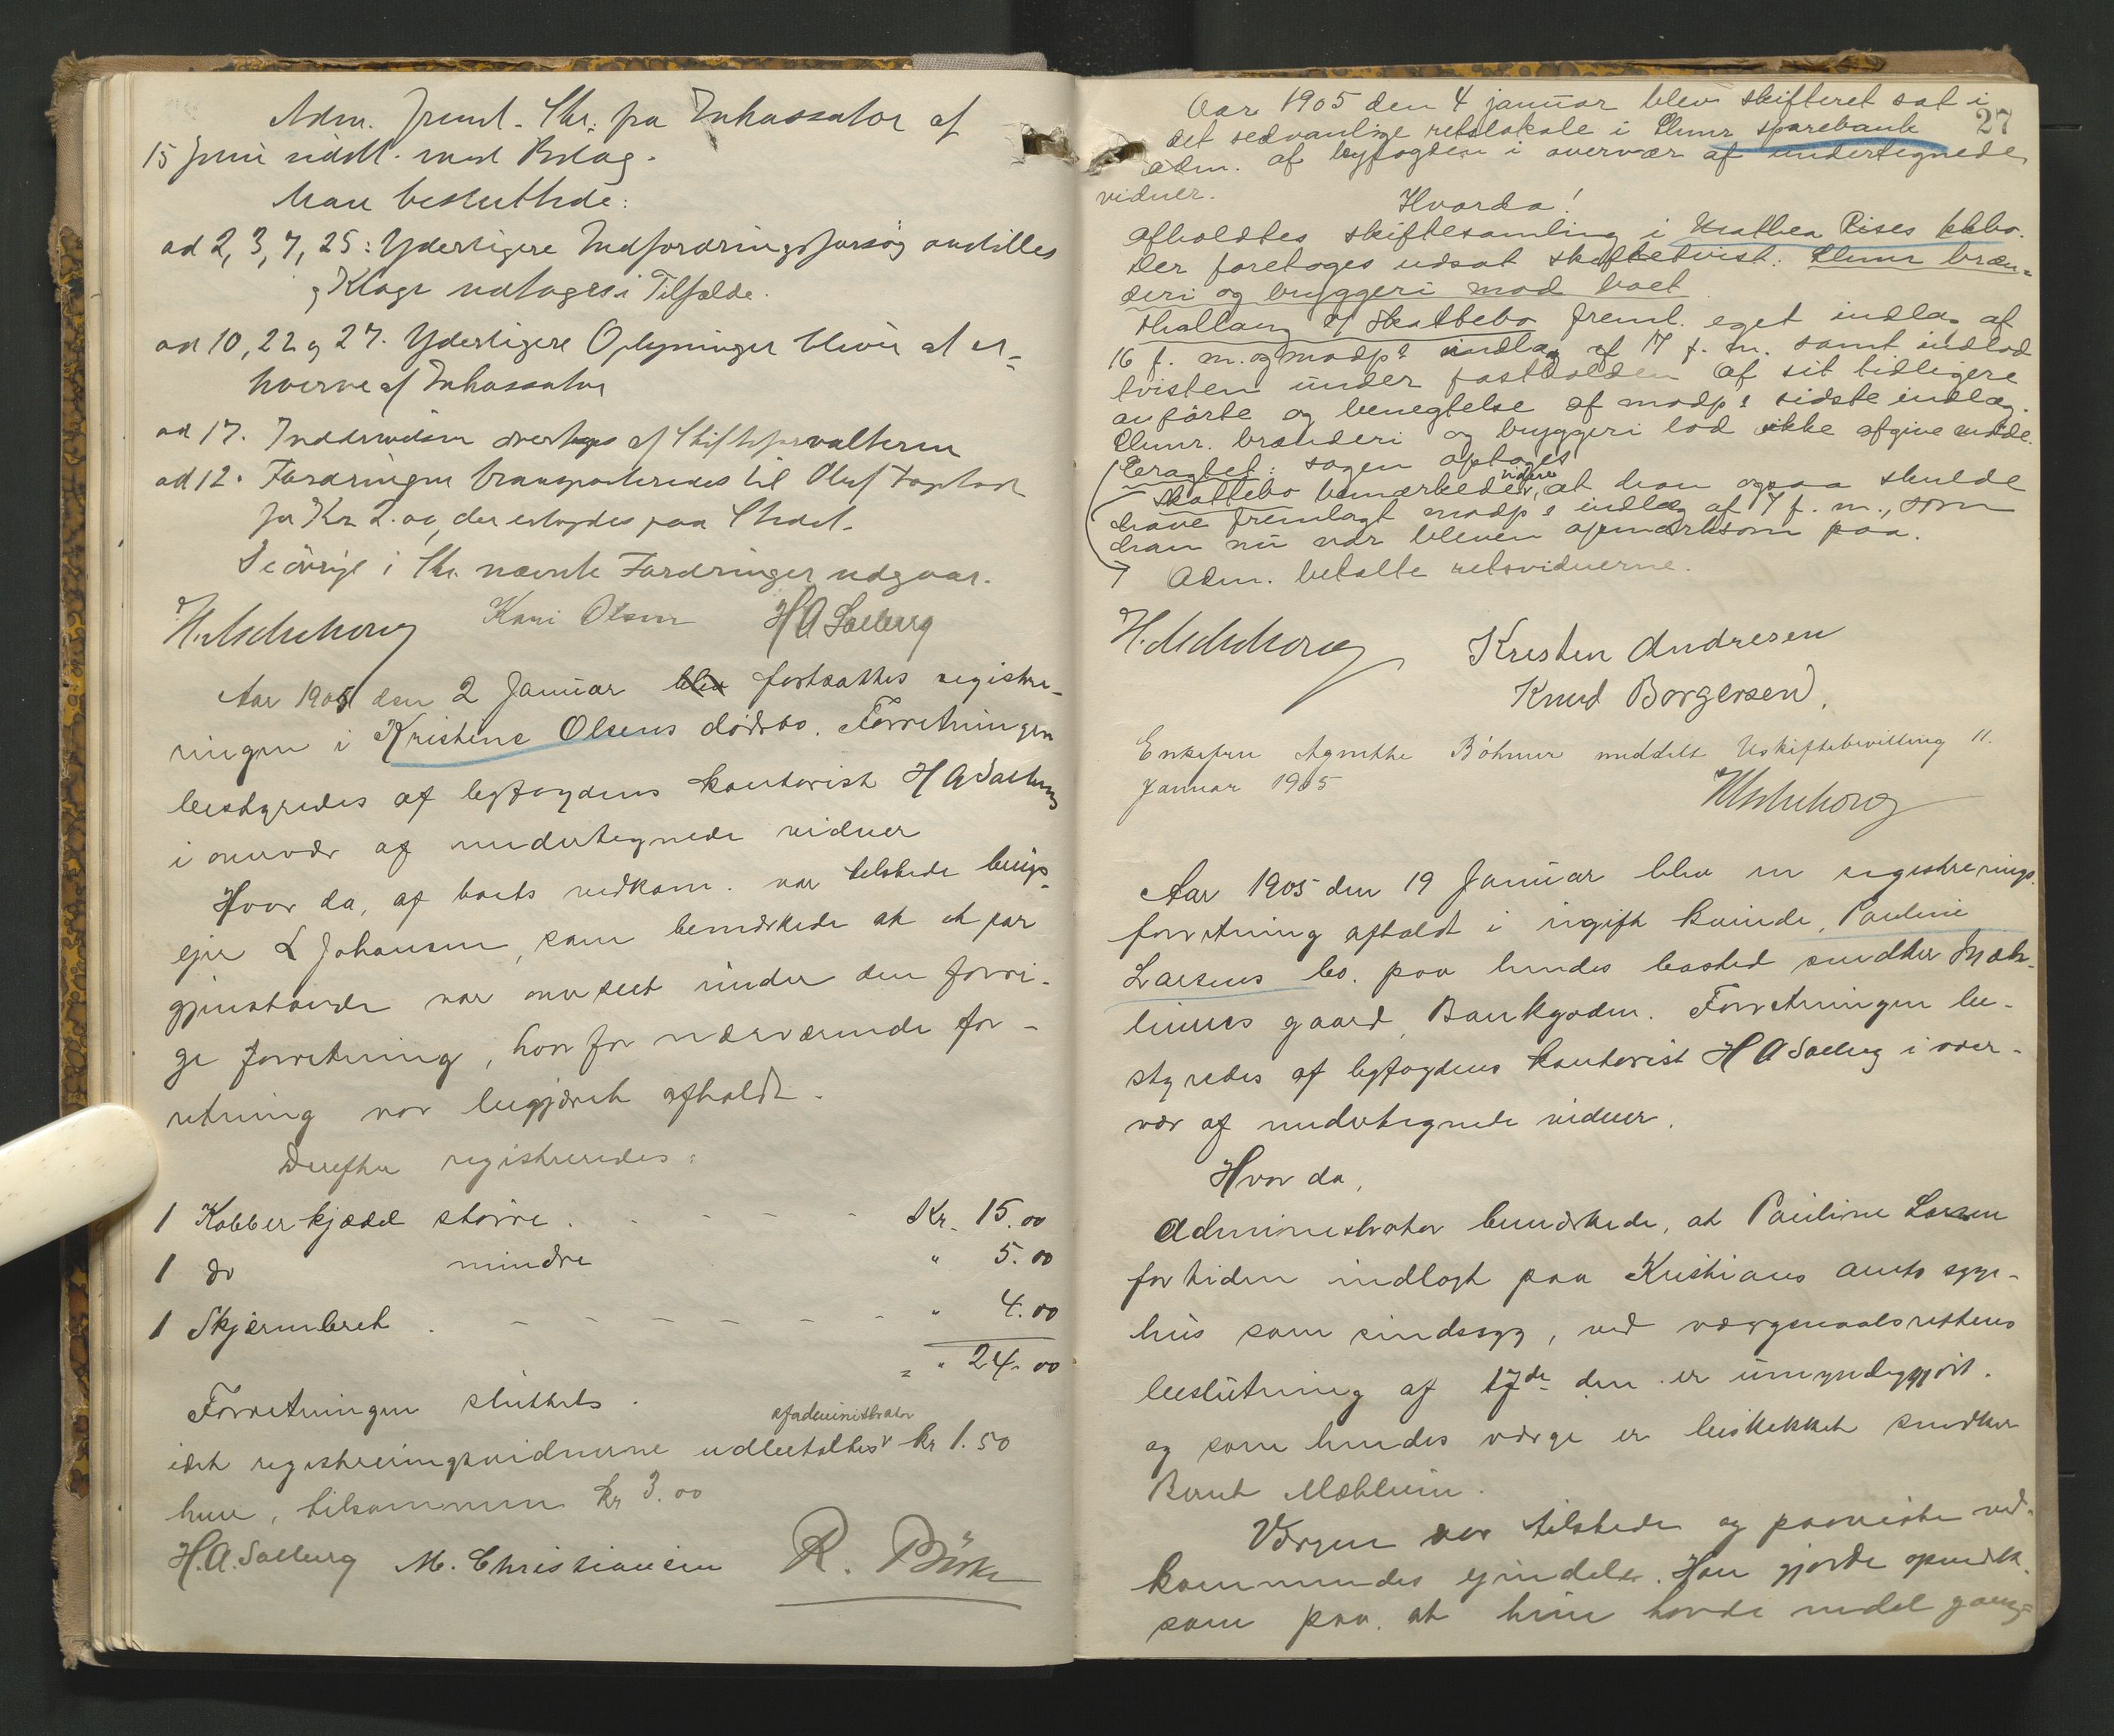 Adm. freml. Skr. fra Inkassator af
15 Juni sidstl. med Bilag.
Man besluttede:
ad 2, 3, 7, 25: Yderligere Inddrivningsforsøg anstilles
og Klage udtages i Tilfælde.
ad 10, 22 og 27. Yderligere Oplysninger bliver at er-
hverve af Inkassator
ad 17. Inddrivelsen overtages af Skifteforvalteren
ad 12. Fordringen transporteredes til Oluf
for Kr 2.00, der erlagdes paa Stedet.
De øvrige i Skr. nævnte Fordringer udgaar.
Kari Olsen H A Solberg
Aar 1905 den 2 Januar blev fortsattes registre-
ringen i Kristine Olsens dødsbo. Forretningen
bestyredes af byfogdens kontorist H A Solberg
i overvær af undertegnede vidner
Hvor da, af boets vedkom. var tilstede brugs-
eier L Johansen, som bemærkede at et par
gjenstande var overseet under den forri-
ge forretning, hvorfor nærværende for-
retning var begjæret afholdt.
Derefter registreredes:
1 Kobberkjædel større . - - - - Kr. 15.00
1 do mindre " 5.00
1 Skjærmbret . - - - - - - " 4.00
= " 24.00
Forretningen sluttet.
af administrator
idet registreringsvidnerne udbetaltes kr 1.50
hver, tilsammen kr 3.00
H.A. Solberg M. Christiansen R.
27
Aar 1905 den 4 januar blev skifteret sat i
det sedvanlige retslokale i Hmr sparebank
adm. af byfogden i overvær af undertegnede
vidner.
Hvorda!
afholdtes skiftesamling i Mathea Rises kkbo.
Der foretoges udsat skiftetvist: Hmr bræn-
deri og bryggeri mod boet
Skattebo freml. eget indlæg af
16 f. m. og modp s indlæg af 17 f. m. samt indlod
tvisten under fastholden af sit tidligere
anførte og benegtelse af modp s sidste indlæg.
Hmr. brænderi og bryggeri lod ikke afgive møde.
Eragtet: sagen optages
Skattebo bemærkede videre, at han ogsaa skulde
have fremlagt modp s indlæg af 7 f. m., som
han nu var bleven opmærksom paa.
Adm. betalte retsvidnerne.
Kristen Andresen
Knud Borgersen.
Enkefru Agnethe Böhmer meddelt Uskiftebevilling 11.
Januar 1905
Aar 1905 den 19 Januar blev en registrerings-
forretning afholdt i ugift kvinde, Pauline
Larsens bo. paa hendes bosted snedker Mæh-
lums gaard, Bankgaden. Forretningen be-
styredes af byfogdens kontorist H A Solberg i over-
vær af undertegnede vidner.
Hvor da,
Administrator bemærkede, at Pauline Larsen
for tiden indlagt paa Kristians amts syge-
hus som sindssyg, ved værgemaalsrettens
beslutning af 17de den er umyndiggjort.
og som hendes værge er beskikket snedker
Bernt Mæhlum.
Værgen var tilstede og paaviste ved-
kommendes eiendele. Han gjorde opmærk-
som paa, at hun havde en del gang-